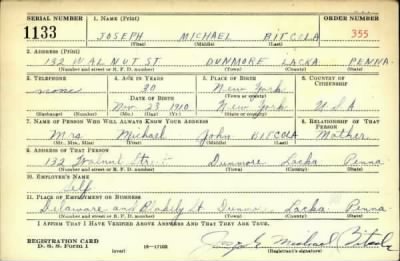 SERIAL NUMBER 1. NAME (Print) ORDER NUMBER
1133 JOSEPH MICHAEL BITCOLA 355
(First) (Middle) (Last)
2. ADDRESS (Print)
132 WALNUT ST DUNMORE LACKA PENNA
(Number and street or R. F. D. number) (Town) (County) (State)
3. TELEPHONE 4. AGE IN YEARS 5. PLACE OF BIRTH 6. COUNTRY OF CITIZENSHIP
none 30 New York
DATE OF BIRTH (Town or county)
Nov. 23 1910 New York U.S.A
(Exchange) (Number) (Mo.) (Day) (Yr.) (State or country)
7. NAME OF PERSON WHO WILL ALWAYS KNOW YOUR ADDRESS 8. RELATIONSHIP OF THAT PERSON
Mrs. Michael John BITCOLA Mother
(Mr., Mrs., Miss) (First) (Middle) (Last)
9. ADDRESS OF THAT PERSON
132 Walnut Str. Dunmore Lacka Penna
(Number and street or R. F. D. number) (Town) (County) (State)
10. EMPLOYER'S NAME
Self
11. PLACE OF EMPLOYMENT OR BUSINESS
Delaware and Blakely St Dunmore Lacka Penna
(Number and street or R. F. D. number) (Town) (County) (State)
I AFFIRM THAT I HAVE VERIFIED ABOVE ANSWERS AND THAT THEY ARE TRUE.
REGISTRATION CARD
D. S. S. Form 1 (over) 16—17105 Michael
(Registrant's signature)